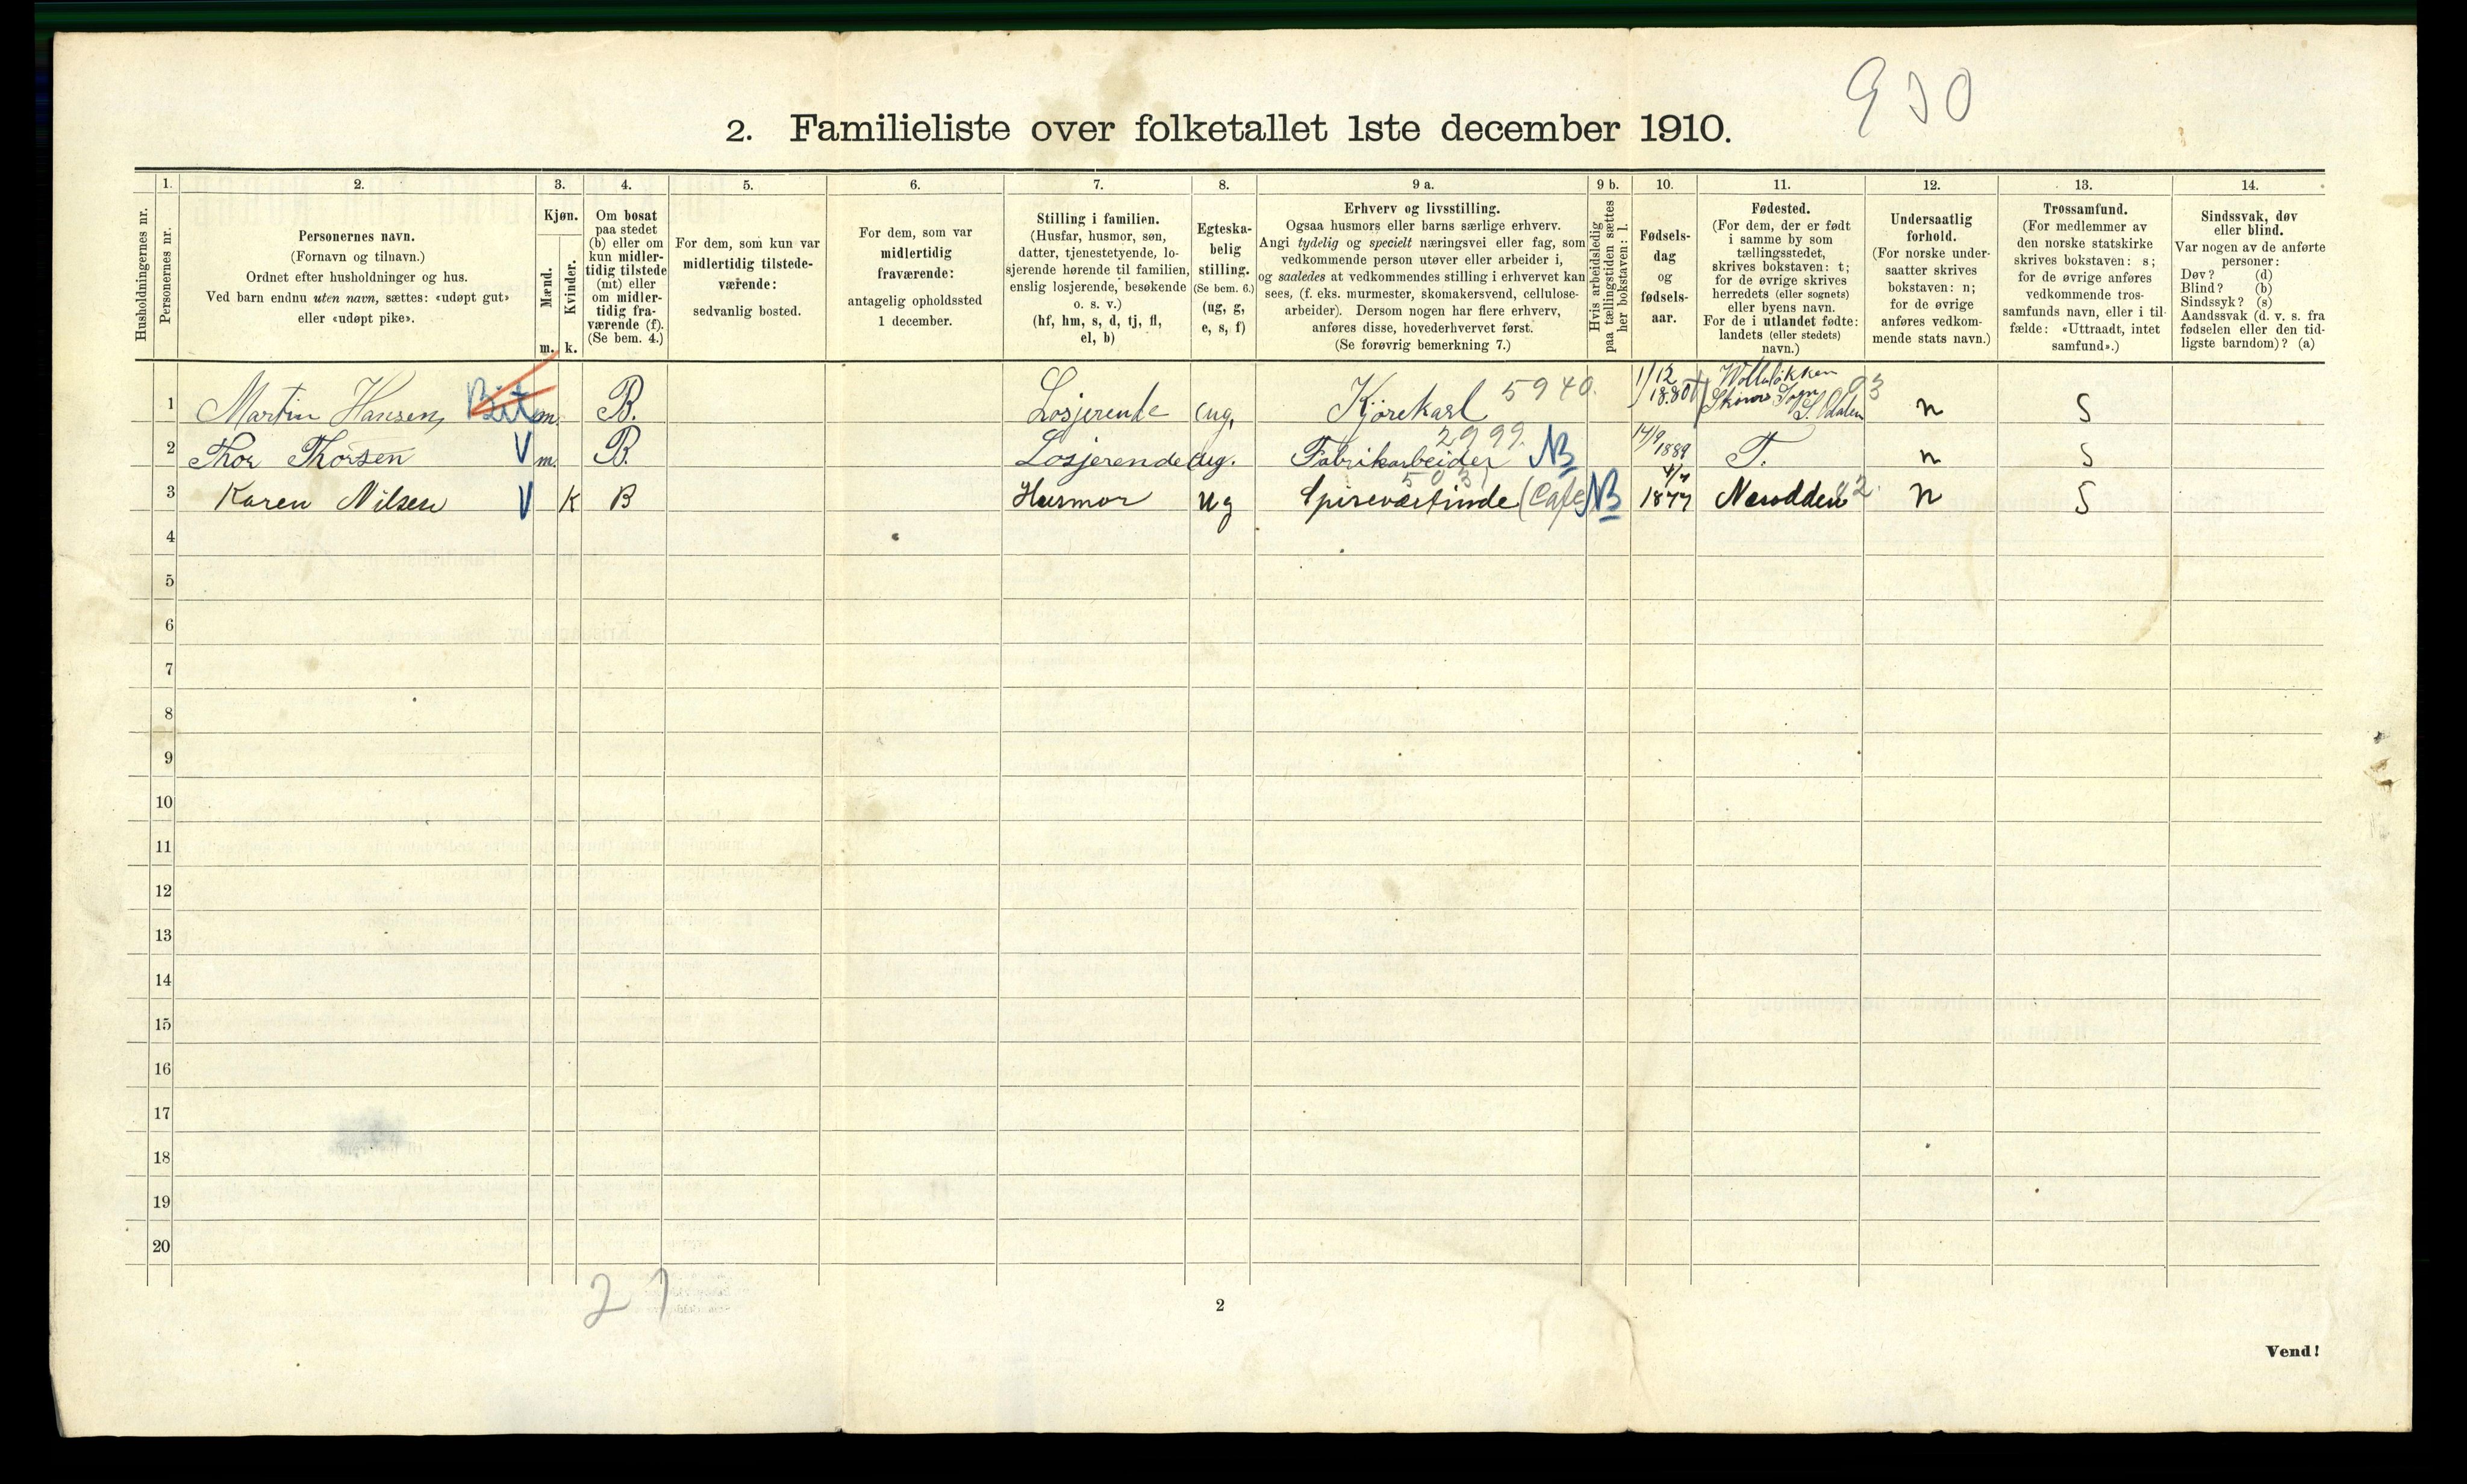 930
2. Familieliste over folketallet 1ste december 1910.
Husholdningernes nr.
1.
Personernes nr.
2.
Personernes navn.
(Fornavn og tilnavn.)
Ordnet efter husholdninger og hus.
Ved barn endnu uten navn, sættes: «udøpt gut»
eller «udøpt pike».
3.
Kjøn.
Mænd.
Kvinder.
m. k.
4.
Om bosat
paa stedet
(b) eller om
kun midler-
tidig tilstede
(mt) eller
om midler-
tidig fra-
værende (f).
(Se bem. 4.)
5.
For dem, som kun var
midlertidig tilstede-
værende:
sedvanlig bosted.
6.
For dem, som var
midlertidig
fraværende:
antagelig opholdssted
1 december.
7.
Stilling i familien.
(Husfar, husmor, søn,
datter, tjenestetyende, lo-
sjerende hørende til familien,
enslig losjerende, besøkende
o. s. v.)
(hf, hm, s, d, tj, fl,
el, b)
8.
Egteska-
belig
stilling.
(Se bem. 6.)
(ug, g,
e, s, f)
9 a.
Erhverv og livsstilling.
Ogsaa husmors eller barns særlige erhverv.
Angi tydelig og specielt næringsvei eller fag, som
vedkommende person utøver eller arbeider i,
og saaledes at vedkommendes stilling i erhvervet kan
sees, (f. eks. murmester, skomakersvend, cellulose-
arbeider). Dersom nogen har flere erhverv,
anføres disse, hovederhvervet først.
(Se forøvrig bemerkning 7.)
9 b.
Hvis arbeidsledig
paa tællingstiden sættes
her bokstaven: l.
10.
Fødsels-
dag
og
fødsels-
aar.
11.
Fødested.
(For dem, der er født
i samme by som
tællingsstedet,
skrives bokstaven: t;
for de øvrige skrives
herredets (eller sognets)
eller byens navn.
For de i utlandet fødte:
landets (eller stedets)
navn.)
12.
Undersaatlig
forhold.
(For norske under-
saatter skrives
bokstaven: n;
for de øvrige
anføres vedkom-
mende stats navn.)
13.
Trossamfund.
(For medlemmer av
den norske statskirke
skrives bokstaven: s;
for de øvrige anføres
vedkommende tros-
samfunds navn, eller i til-
fælde: «Uttraadt, intet
samfund».)
14.
Sindssvak, døv
eller blind.
Var nogen av de anførte
personer:
Døv? (d)
Blind? (b)
Sindssyk? (s)
Aandssvak (d. v. s. fra
fødselen eller den tid-
ligste barndom)? (a)
1 Martin Hansen, m. B. Losjerende ug, Kjørekarl 5940. 1/12 1880 Sogn S. Odalen 03 n S
2 Thor Thorsen V m. B. Losjerende ug. Fabrikarbeider 2999. NB 14/9 1889 T. n S
3 Karen Nilsen V K B Husmor ug Spiseværtinde (Cafe) 5031 NB 1877 Nesodden 02. n S
4
5
6
7
8
9
10
11
12
13
14
15
16
17
18
19
20
21
2
Vend!